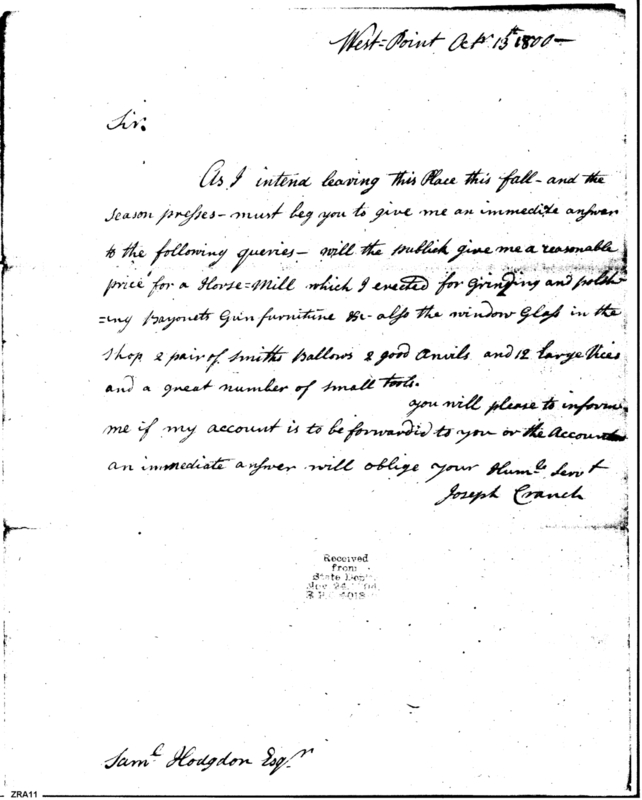 West=Point Octr 15th 1800—
Sir.
As I intend leaving this Place this fall – and the
season presses – must beg you to give me an immediate answer
to the following queries – will the Publick give me a reasonable
price for a Horse=Mill which I erected for Grinding and polish
=ing Bayonets Gun furniture &c – also the window Glass in the
shop 2 pair of smiths Ballows 2 good Anvils and 12 large Vices
and a great number of small tools.
you will please to inform
me if my account is to be forwardid to you or the Accountan
an immediate answer will oblige your Humle Servt
Joseph Cranch
Received
from
State Dept.
Saml Hodgdon Esqr
ZRA11